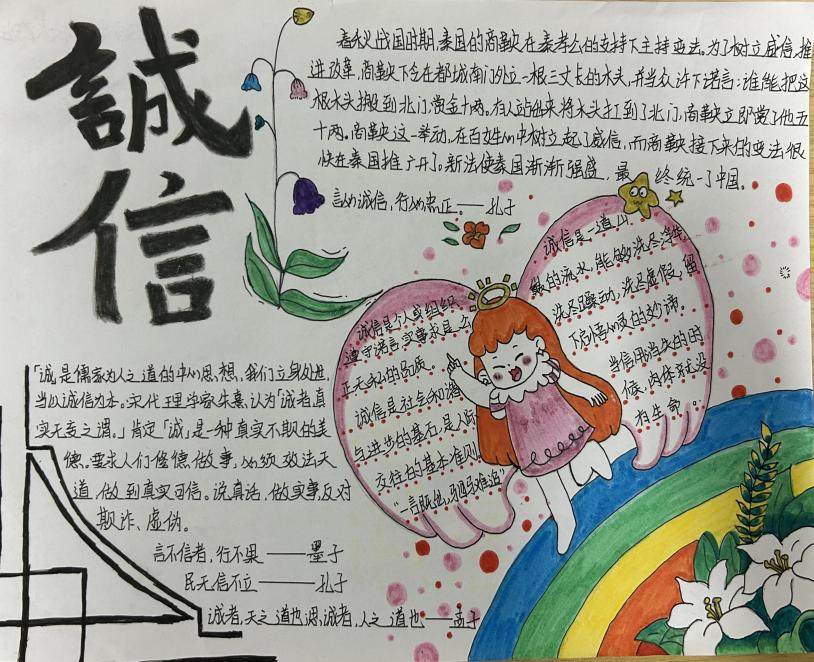 誠
信
春秋战国时期,秦国的商鞅在秦孝公的支持下主持变法。为了树立威信,推
进改革,商鞅下令在都城南门外立一根三丈长的木头,并当众许下诺言:谁能把这
根木头搬到北门,赏金十两。有人站出来将木头扛到了北门,商鞅立即赏了他五
十两。商鞅这一举动,在百姓心中树立起了威信,而商鞅接下来的变法很
快在秦国推广开了。新法使秦国渐渐强盛,最终统一了中国。
言必诚信,行必忠正。——孔子
诚信是个人或组织
遵守诺言,实事求是,公
正无私的品质。
诚信是社会和谐
与进步的基石,是人际
交往的基本准则
“一言既出,驷马难追”
诚信是一道山
的流水,能够洗尽浮华
洗尽躁动,洗尽虚假,留
下启悟心灵的妙谛。
当信用消失的时
候,肉体就没
有生命...
「诚」是儒家为人之道的中心思想,我们立身处世,
当以诚信为本。宋代理学家朱熹,认为「诚者,真
实无妄之谓。」肯定「诚」是一种真实不欺的美
德。要求人们修德做事,必须效法天
道,做到真实可信。说真话,做实事,反对
欺诈、虚伪。
言不信者,行不果——墨子
民无信不立——孔子
诚者,天之道也;思诚者,人之道也——孟子